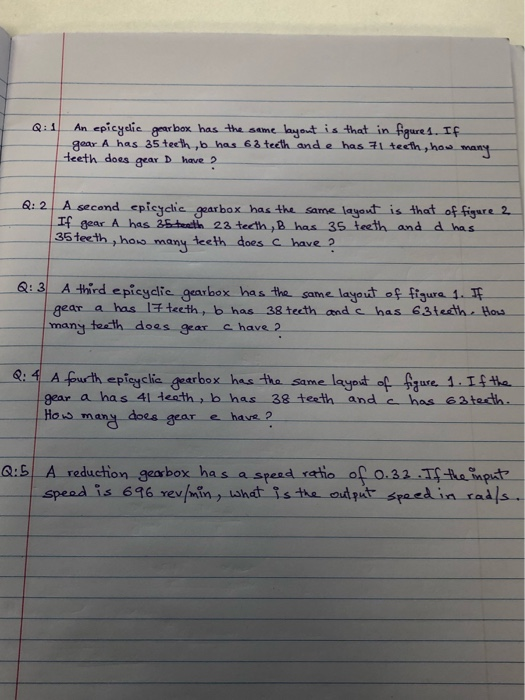 Q:1 An epicyclic gearbox has the same layout is that in figure 1. If
gear A has 35 teeth, b has 63 teeth and e has 71 teeth, how many
teeth does gear D have ?
Q: 2 A second epicyclic gearbox has the same layout is that of figure 2
If gear A has 35 teeth 23 teeth, B has 35 teeth and d has
35 teeth, how many teeth does C have ?
Q: 3 A third epicyclic gearbox has the same layout of figure 1. If
gear a has 17 teeth, b has 38 teeth and c has 63 teeth. How
many teeth does gear c have ?
Q: 4 A fourth epicyclic gearbox has the same layout of figure 1. If the
gear a has 41 teeth, b has 38 teeth and c has 63 teeth.
How many does gear e have ?
Q:5 A reduction gearbox has a speed ratio of 0.33. If the input
speed is 696 rev/min, what is the output speed in rad/s.